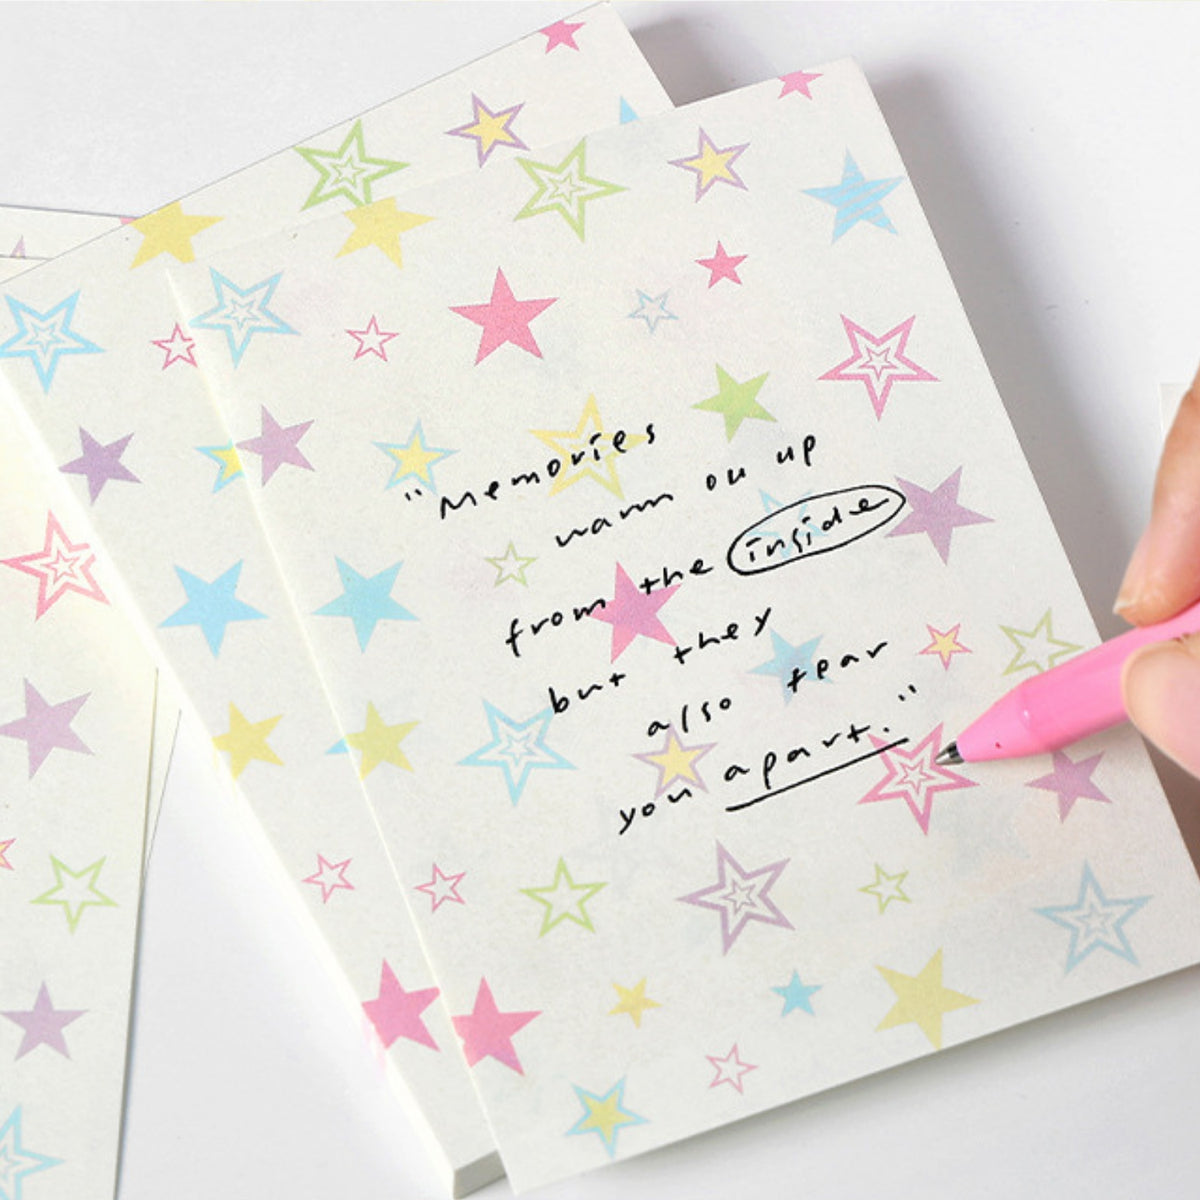 "Memories
warm ou up
from the inside
but they
also tear
you apart."